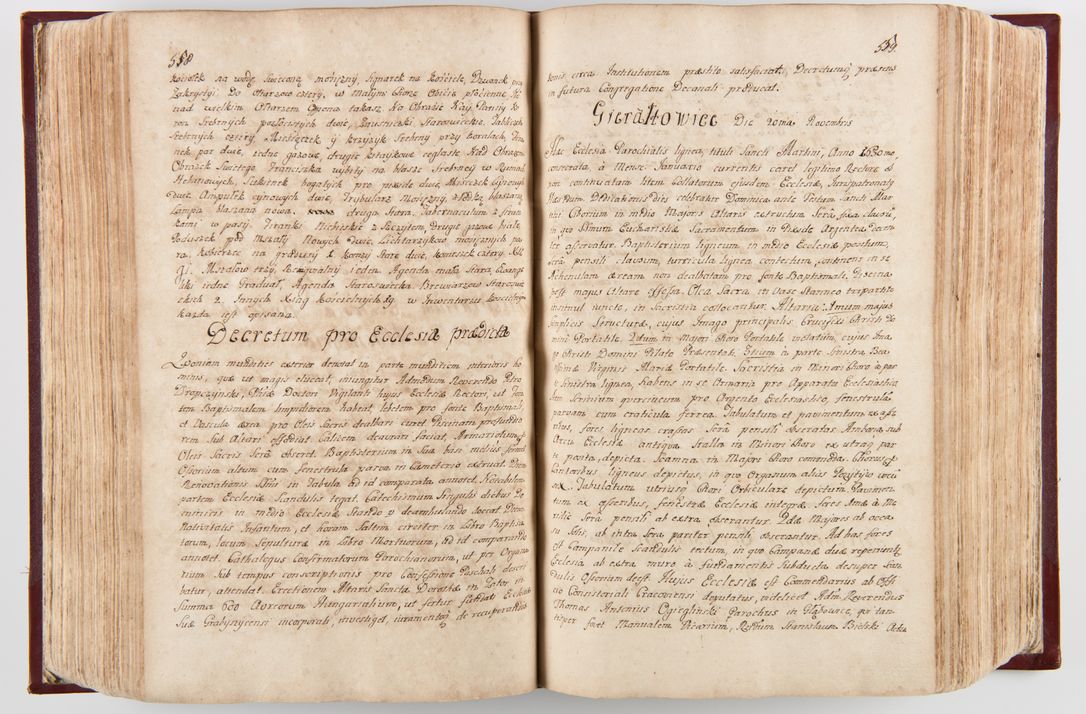 558
kociołek na wodę święconą mosiężny, signarek na kościele, Dzwonek przy
Zakrystyi Do Ołtarzow cztery, w małym Chorze Obicie płocienne
nad wielkim Ołtarzem Opona takasz. Na Obrazie N: Panny Ko
ron Srebrnych pozłocistych dwie, Zauszniczki Staroswieckie, Tabliczek
Srebrnych cztery, Miesiączek y krzyżyk Srebrny przy koralach,
nek par dwie, iedne gazowe, drugie kitaykowe ceglaste. Nad Obrazem
Obrazek Swiętego Franciszka wybity na blasze Srebrney w Ramach
Hebanowych, Sukienek bogatych pro pixide dwie, Miseczek Cynowych
dwie, Ampułek cynowych dwie, Trybularz Mosiężny, z łodką blaszaną
Lampa blaszana nowa. druga Stara. Tabernaculum z firan
kami w pasy. Firanki Niebieskie z Szczytem, Drugie gazowe białe,
Poduszek pod Mszały Nowych dwie, Lichtarzykow mosiężnych pa
ra, kobierzec na gradusy 1 komży Stare dwie, komeszek cztery,
gi. Mszałow trzy, Requialny ieden, Agenda mała Stara, Ewange
liki iedne Graduał, Agenda Staroswiecka Brewiarzow Staroswie
ckich 2. Innych Xiąg Kościelnych 19. w Inwentarzu Kościelnym
każda iest opisana.
Decretum pro Ecclesia prædicta
Quoniam mundities exterior denotat in parte munditiem interioris ho
minis, quæ ut magis eluceat, iniungitur Admodum Reverendo Petro
Dropczyński, Phiæ Doctori Vigilanti hujus Ecclesiæ Rectori, ut Fon
tem Baptismalem limpidiorem habeat, lebetem pro fonte Baptismali,
et Vascula ærea pro Oleis Sacris dealbari curet Piscinam profundio
rem sub Altari effodiat Calicem deaurari faciat, Armariolum pro
Oleis Sacris Serâ obseret. Baptisterium in Sua basi melius firmet
Ossorium altum cum fenestrula parva in Cæmeterio extruat. Diem
Renovationis SSmi in Tabula ad id comparata annotet. Notabilem
partem Ecclesiæ Scandulis tegat. Catechismum Singulis diebus Do
minicis in medio Ecclesiæ Stando v deambulando doceat. Diem
Nativitatis Infantum, et horam Saltim circiter in Libro Baptiza
torum, locum Sepulturæ in Libro Mortuorum, ad id comparando
annotet. Cathalogus Confirmatorum Parochianorum, ut per Organa
rium Sub tempus conscriptionis pro Confessione Paschali descri
batur, attendat. Erectionem Altaris Sanctæ Dorotheæ in Zator in
Summa 600 Aureorum Hungaricalium, ut fertur fundati Ecclesiæ
Suæ Grabyszycensi incorporati, investiget, iuramentoque de recuperandis
559.
bonis circa Institutionem præstito satisfaciat. Decretumque præsens
in futura Congregatione Decanali producat.
Gierałtowiec Die 20ma Novembris
Hæc Ecclesia Parochialis lignea, tituli Sancti Martini, Anno 1530mo,
consecrata, a Mense Januario currentis caret legitimo Rectore ob
non continuatam litem Collatorum ejusdem Ecclesiæ, Jurispatronatus
Nostrum Dedicationis dies celebratur Dominica ante Festum Sancti Mar
tini Ciborium in medio Majoris Altaris extructum Serâ fixa clausum,
in quo SSmum Eucharistiæ Sacramentum in Pixide Argentea decen
ter asservatur. Baptisterium ligneum in medio Ecclesiæ positum,
Serâ pensili clausum, turricula lignea contectum, continens in se
Achenulam æream non dealbatam pro fonte Baptismali. Piscina
post majus Altare effossa Olea Sacra in Vase Stanneo tripartito
insimul juncto, in Sacrestia collocantur. Altaria: 1mum majus
simplicis Structuræ, cujus Imago principalis Crucifixi Christi Do
mini Portatile. 2dum in Majori Choro Portabile violatum, cujus Ima
go Christi Domini Pilato Præsentati. 3tium à parte Sinistra Bea
tissimæ Virginis Mariæ Portatile. Sacristia in Minori Choro à par
te Sinistra lignea, habens in se Armaria pro Apparatu Ecclesiastico
Item Scrinium quercineum pro Argento Ecclesiastico, fenestrulam
parvam cum craticula ferrea. Tabulatum et pavimentum ex asse
ribus, fores ligneas crassas Serâ pensili obseratas Ambona sub
Arcu Ecclesiæ antiqua Stalla in Minori Choro ex utraque par
te posita, depicta. Scamna in Majori Choro commoda. Chorus pro
Cantoribus ligneus depictus, in quo Organum aliàs Pozytyw vocu
 Tabulatum utriusque Chori Orbiculare depictum Pavimen
tum ex asseribus, fenestræ Ecclesiæ integræ, fores 1mæ à Me
ridie Serâ pensili ab extra obserantur. 2dæ Majores ab occa
su Solis, ab intra Serâ pariter pensili obserantur. Ad has fores
est Campanile Scandulis tectum, in quo Campanæ duæ reperiuntur
Ecclesia ab extra muro à fundamentis Subducta desuper Scan
dulis Ossorium deest. Hujus Ecclesiæ est Commendarius ab Offi
cio Consistoriali Cracoviensi deputatus, videlicet Adm. Reverendus
Thomas Antonius Cgiegliński Parochus in Głębowice, qui tan
tisper fovet Manualem Vicarium, Rndum Stanislaum Bielski Acta